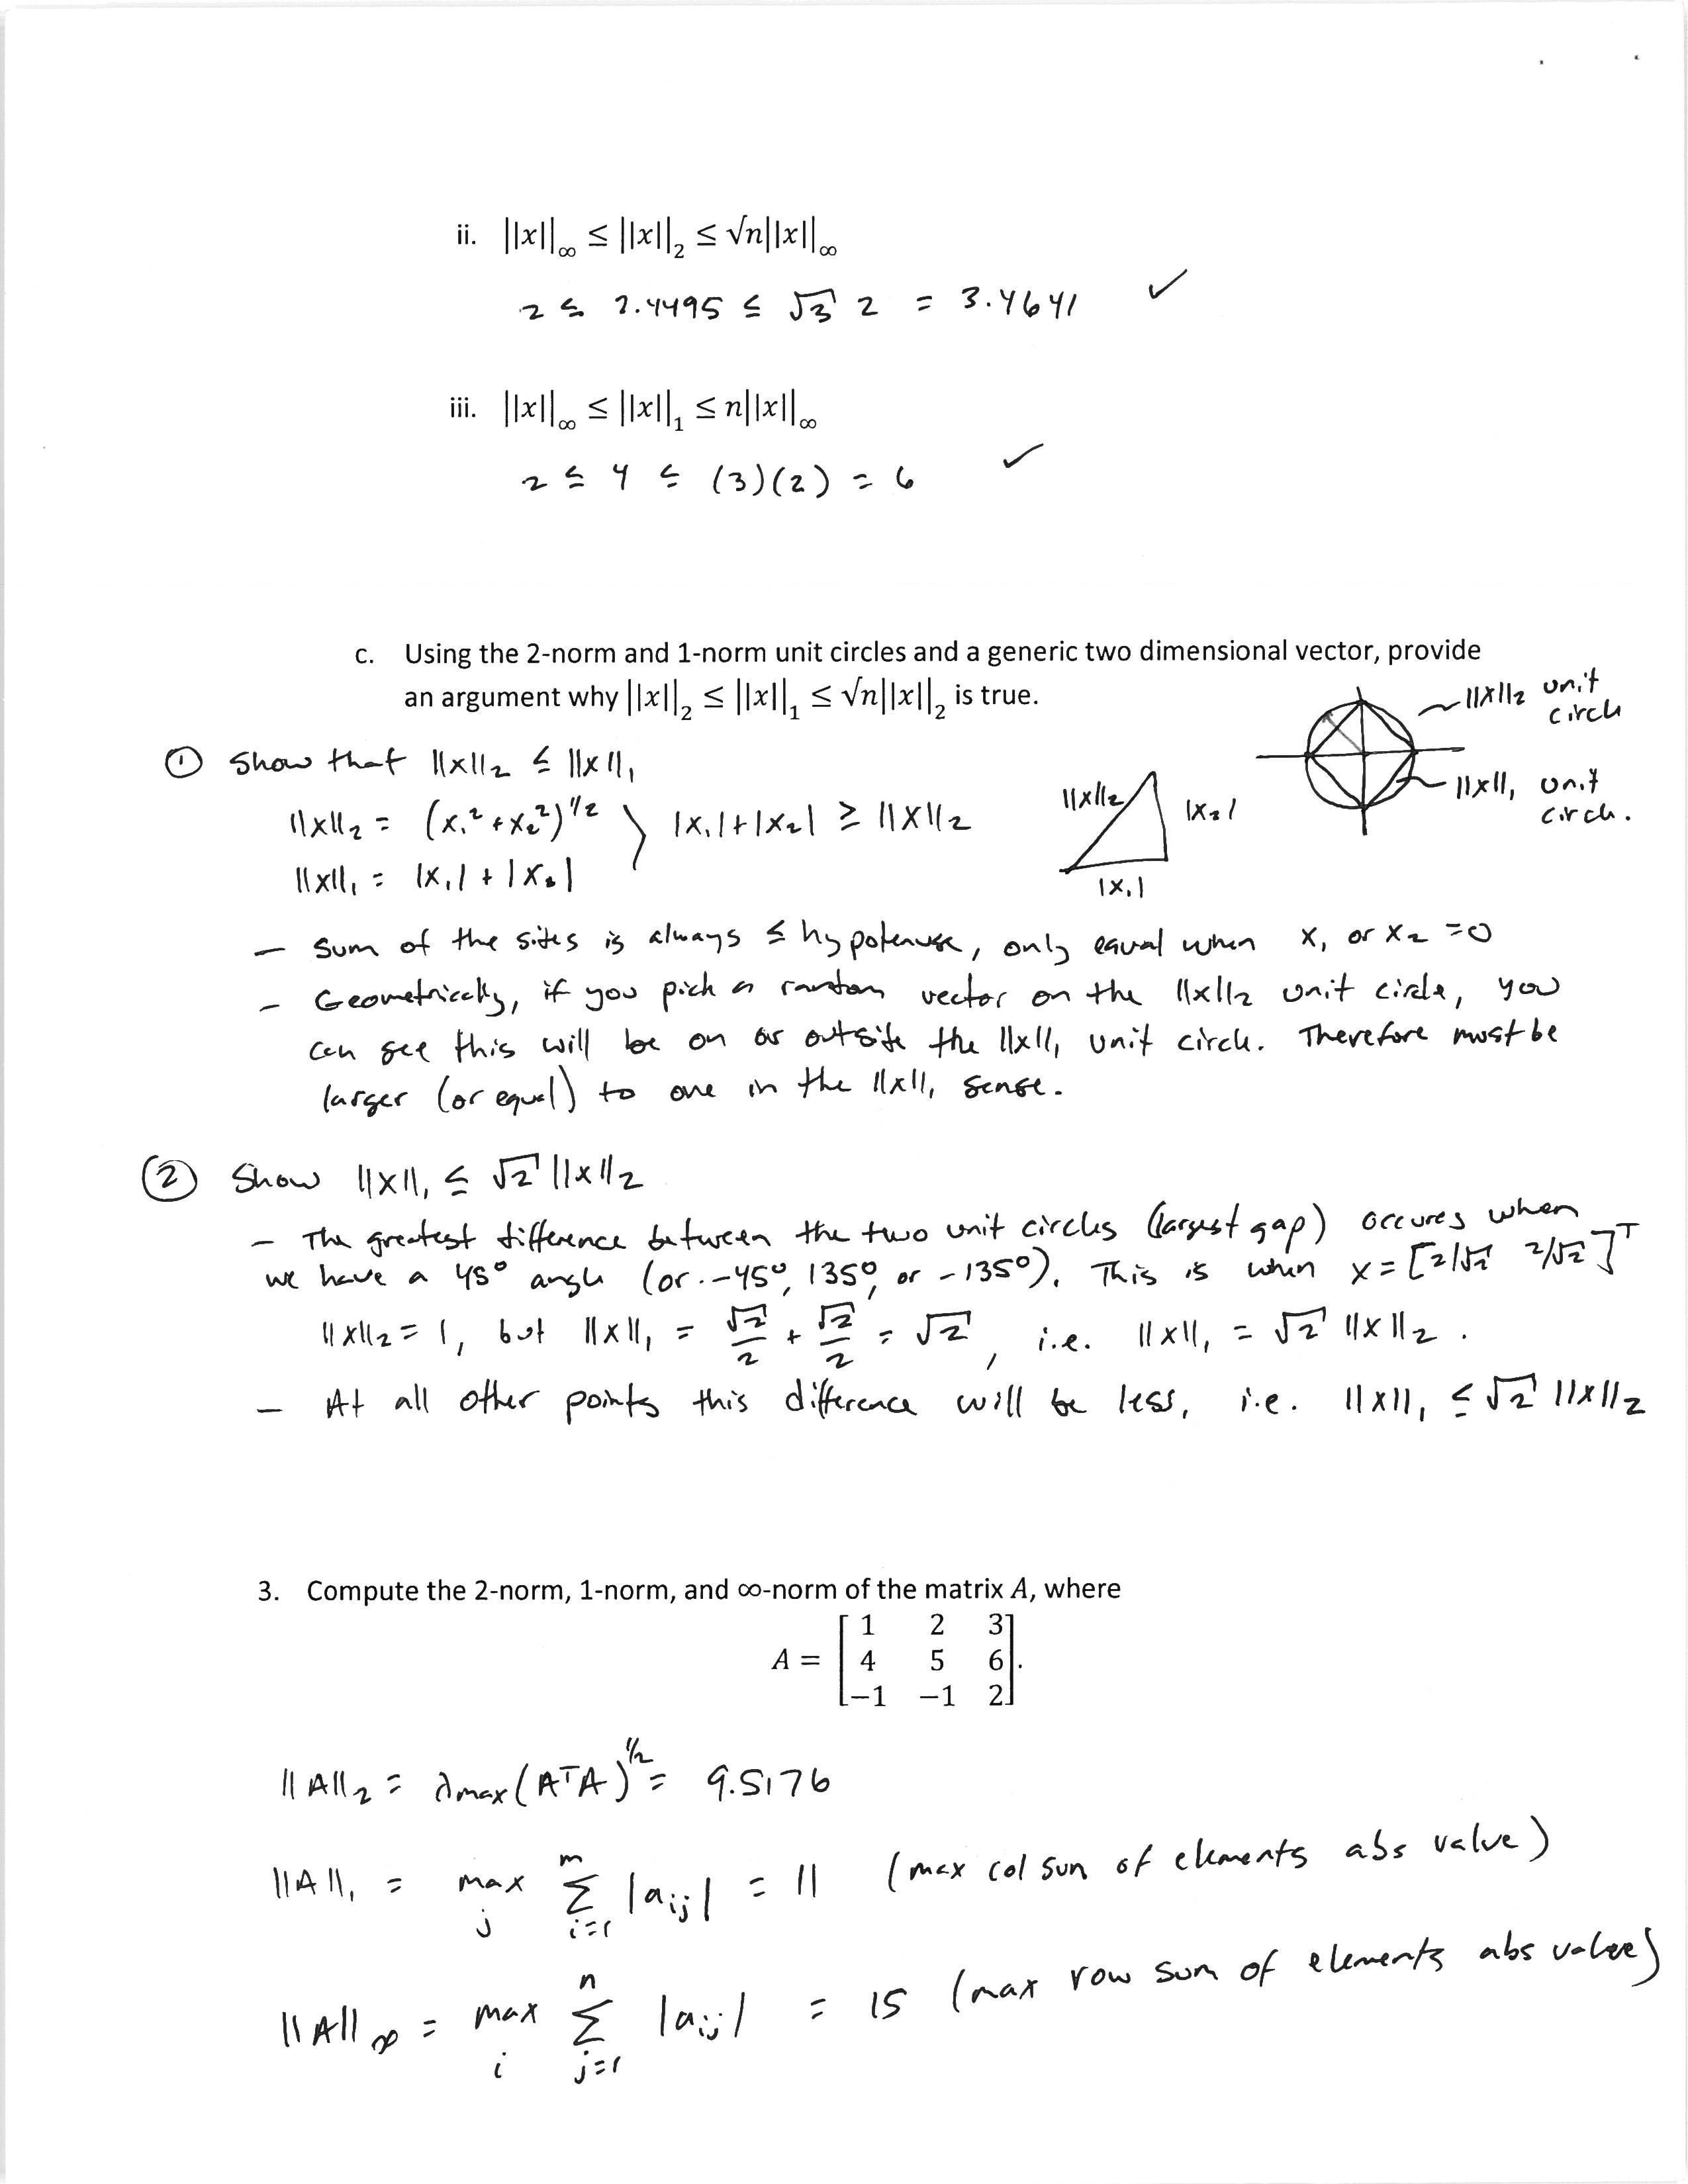 ii. ||x||∞ ≤ ||x||₂ ≤ √n||x||∞
2 ≤ 2.4495 ≤ √3 2 = 3.4641 ✓
iii. ||x||∞ ≤ ||x||₁ ≤ n||x||∞
2 ≤ 4 ≤ (3)(2) = 6 ✓
c. Using the 2-norm and 1-norm unit circles and a generic two dimensional vector, provide
an argument why ||x||₂ ≤ ||x||₁ ≤ √n||x||₂ is true.
||x||₂ unit
circle
||x||₁ unit
circle.
① Show that ||x||₂ ≤ ||x||₁
||x||₂ = (x₁² + x₂²)^1/2 } |x₁| + |x₂| ≥ ||x||₂
||x||₁ = |x₁| + |x₂|
||x||₂
|x₂|
|x₁|
– Sum of the sides is always ≤ hypotenuse, only equal when x₁ or x₂ = 0
– Geometrically, if you pick a random vector on the ||x||₂ unit circle, you
can see this will be on or outside the ||x||₁ unit circle. Therefore must be
larger (or equal) to one in the ||x||₁ sense.
② Show ||x||₁ ≤ √2 ||x||₂
– The greatest difference between the two unit circles (largest gap) occures when
we have a 45° angle (or -45°, 135°, or -135°). This is when x = [2/√2 2/√2]ᵀ
||x||₂ = 1, but ||x||₁ = √2/2 + √2/2 = √2, i.e. ||x||₁ = √2 ||x||₂.
– At all other points this difference will be less, i.e. ||x||₁ ≤ √2 ||x||₂
3. Compute the 2-norm, 1-norm, and ∞-norm of the matrix A, where
A = [1 2 3
4 5 6
−1 −1 2].
||A||₂ = λmax(AᵀA)^1/2 = 9.5176
||A||₁ = max j Σ i=1 m |aij| = 11 (max col sum of elements abs value)
||A||∞ = max i Σ j=1 n |aij| = 15 (max row sum of elements abs value)